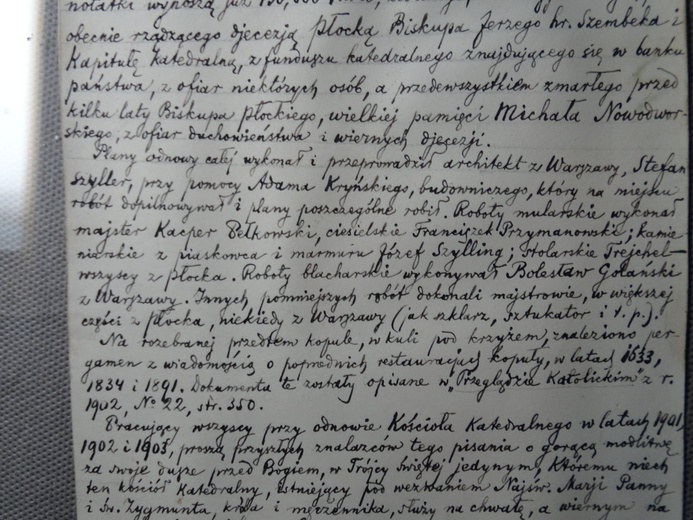 notatki wynoszą już
obecnie rządzącego djecezją płocką Biskupa Jerzego hr. Szembeka i
Kapitułę Katedralną, z funduszu katedralnego znajdującego się w banku
państwa, z ofiar niektórych osób, a przedewszystkiem zmarłego przed
kilku laty Biskupa płockiego, wielkiej pamięci Michała Nowodwor-
skiego, z ofiar duchowieństwa i wiernych djecezji.
Plany odnowy całej wykonał i przeprowadził architekt z Warszawy, Stefan
Szyller, przy pomocy Adama Kryńskiego, budowniczego, który na miejscu
robót dopilnowywał i plany poszczególne robił. Roboty mularskie wykonał
majster Kacper Pełkowski, ciesielskie Franciszek Przymanowski, kamie
niarskie z piaskowca i marmuru Józef Szylling; stolarskie Trejchel–
wszyscy z Płocka. Roboty blacharskie wykonywał Bolesław Golański
z Warszawy. Innych pomniejszych robót dokonali majstrowie, w większej
części z Płocka, niekiedy z Warszawy (jak szklarz, sztukator i t. p.).
Na rozebranej przedtem kopule, w kuli pod krzyżem, znaleziono per-
gamen z wiadomością o poprzednich restauracjach kopuły, w latach 1633,
1834 i 1891. Dokumenta te zostały opisane w „Przeglądzie Katolickim" z r.
1902, No 22, str. 350.
Pracujący wszyscy przy odnowie Kościoła Katedralnego w latach 1901,
1902 i 1903, proszą przyszłych znalazców tego pisania o gorącą modlitwę
za swoje dusze przed Bogiem, w Trójcy Świętej jedynym, Któremu niech
ten kościół Katedralny, istniejący pod wezwaniem Najśw. Marji Panny
i Św. Zygmunta, króla i męczennika, służy na chwałę, a wiernym na